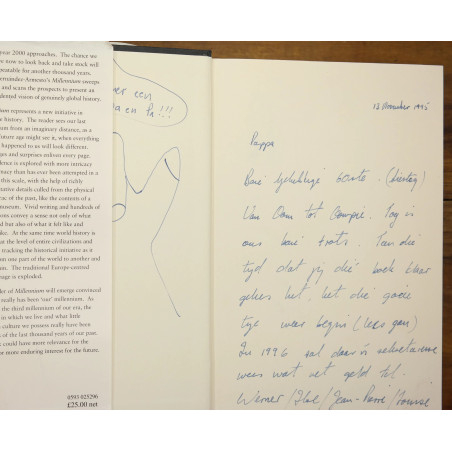 year 2000 approaches. The chance we
now to look back and take stock will
peatable for another thousand years.
ernández-Armesto's Millennium sweeps
and scans the prospects to present an
dented vision of genuinely global history.
um represents a new initiative in
history. The reader sees our last
um from an imaginary distance, as a
future age might see it, when everything
happened to us will look different.
ges and surprises enliven every page.
dence is explored with more intricacy
ce than has ever been attempted in a
this scale, with the help of richly
ntative details culled from the physical
of the past, like the contents of a
museum. Vivid writing and hundreds of
ons convey a sense not only of what
d but also of what it felt like and
ke. At the same time world history is
at the level of entire civilizations and
tracking the historical initiative as it
n one part of the world to another and
n. The traditional Europe-centred
age is exploded.
der of Millennium will emerge convinced
really has been 'our' millennium. As
the third millennium of our era, the
in which we live and what little
culture we possess really have been
t of the last thousand years of our past.
could have more relevance for the
r more enduring interest for the future.
0593 025296
£25.00 net
er een
en Pa!!!
13 November 1995
Pappa
Baie gelukkige 60ste (dinsdag)
Van Oom tot Oompie. Tog is
ons baie trots. Teen die
tyd dat jy dié boek klaar
gelees het, het die goeie
tye weer begin (lees gou)
In 1996 sal daar 'n sekretaresse
wees wat vet geld tel.
Werner/Ilse/Jean-Pierre/Louise